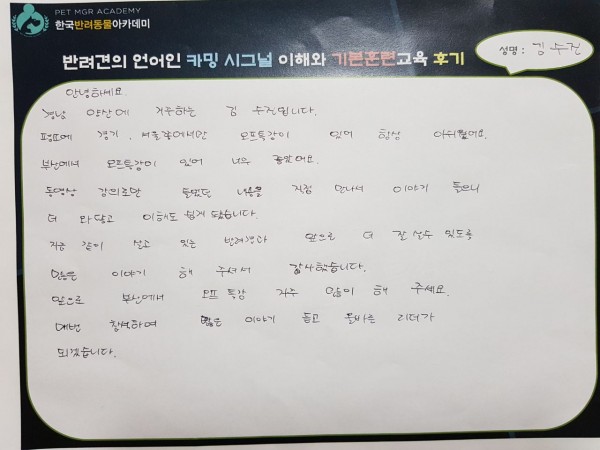 PET MGR ACADEMY
한국반려동물아카데미
반려견의 언어인 카밍 시그널 이해와 기본훈련교육 후기
성명 : 김수진
안녕하세요
경남 양산에 거주하는 김 수진입니다.
평소에 경기, 서울쪽에서만 오프특강이 있어 항상 아쉬웠어요.
부산에서 오프특강이 있어 너무 좋았어요.
동영상 강의로만 들었던 내용을 직접 만나서 이야기 들으니
더 와닿고 이해도 쉽게 됐습니다.
지금 같이 살고 있는 반려견과 앞으로 더 잘 살수 있도록
이야기 해 주셔서 감사했습니다.
앞으로 부산에서 오프 특강 자주 많이 해 주세요.
매번 참석하여 많은 이야기 듣고 올바른 리더가
되겠습니다.